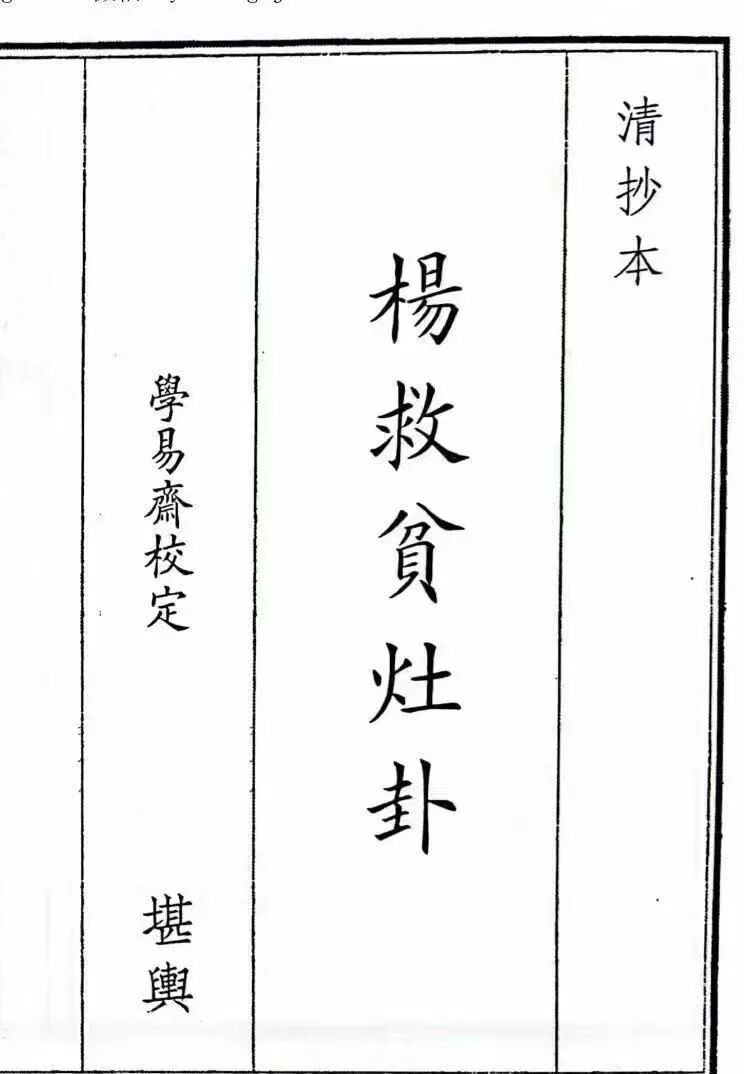 清抄本
楊救貧灶卦
學易齋校定
堪輿